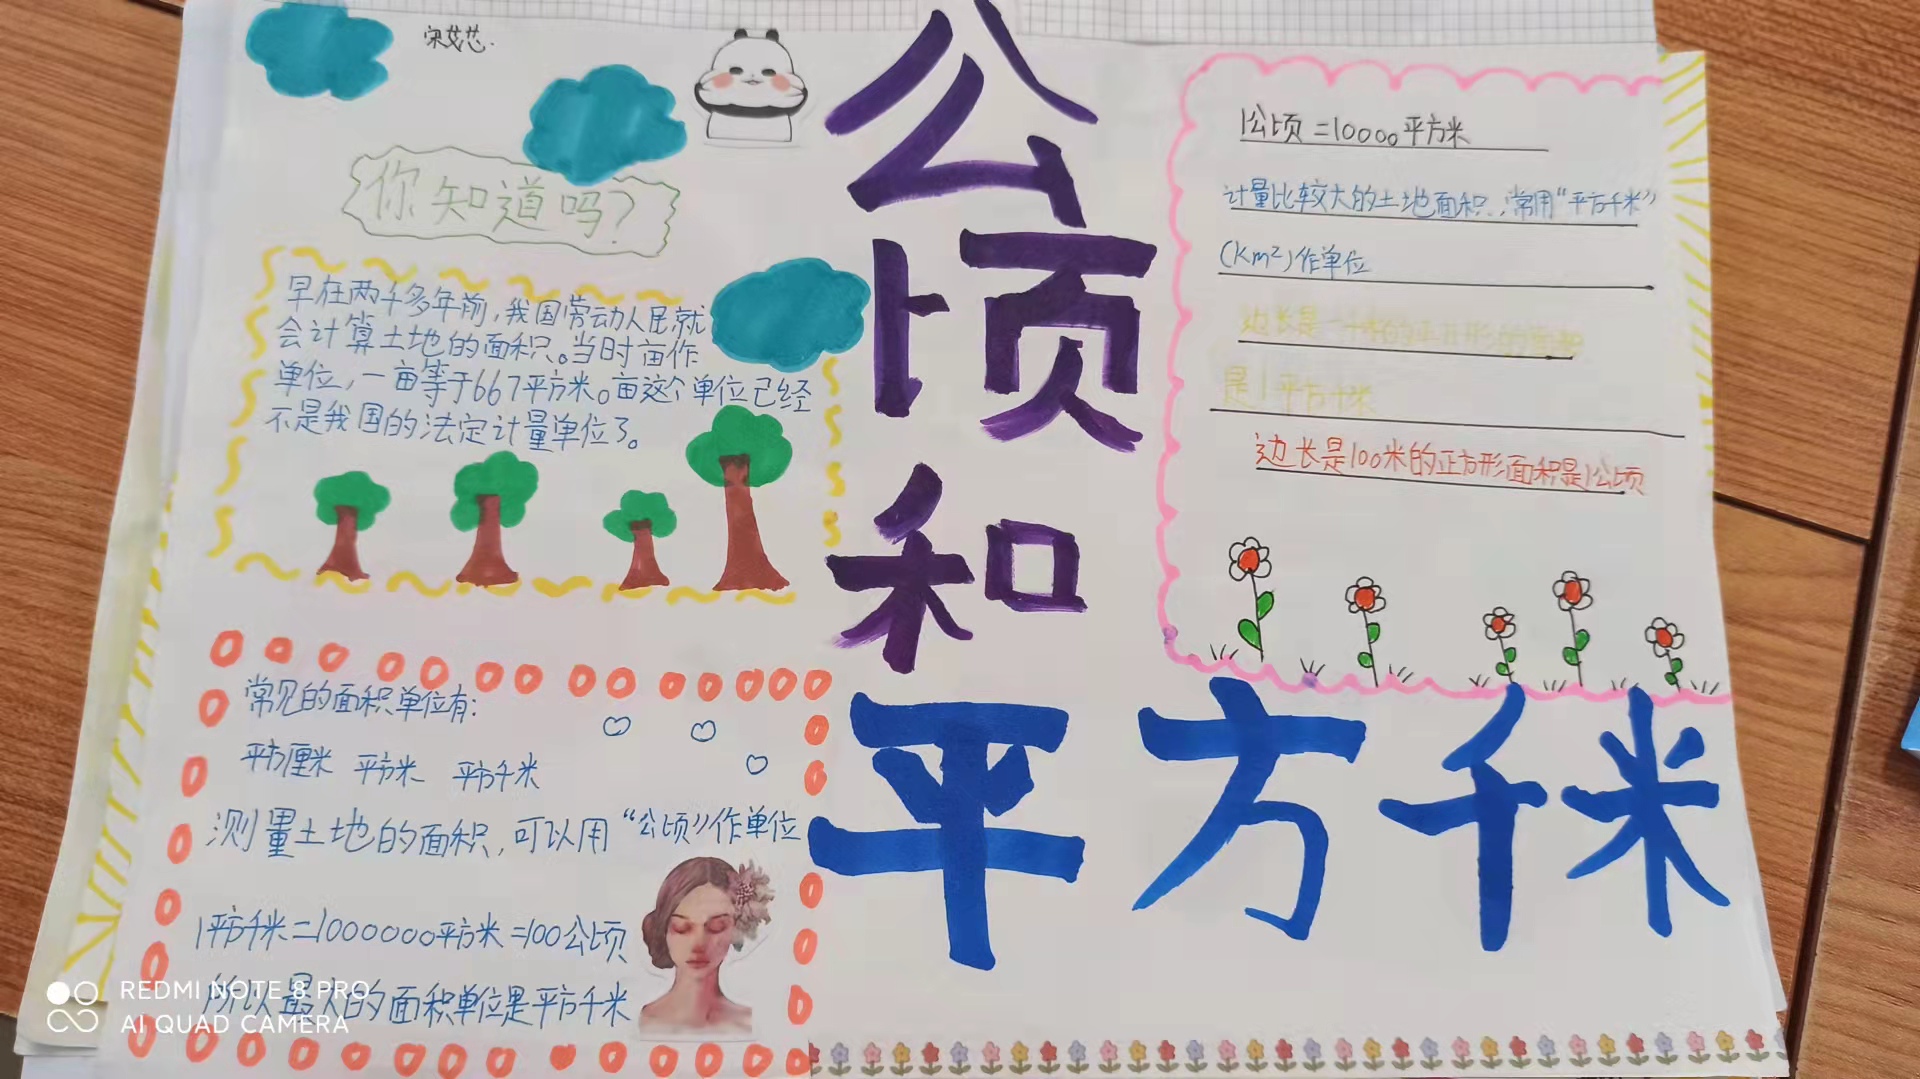 宋艾芯.
你知道吗?
早在两千多年前,我国劳动人民就
会计算土地的面积。当时亩作
单位,一亩等于667平方米。亩这个单位已经
不是我国的法定计量单位了。
常见的面积单位有:
平方厘米 平方米 平方千米
测量土地的面积,可以用“公顷”作单位
1平方千米=1000000平方米=100公顷
所以最大的面积单位是平方千米
公顷
和
平方千米
1公顷=10000平方米
计量比较大的土地面积,常用“平方千米”
(Km²)作单位
边长是一千米的正方形的面积
是1平方千米
边长是100米的正方形面积是1公顷
REDMI NOTE 8 PRO
AI QUAD CAMERA